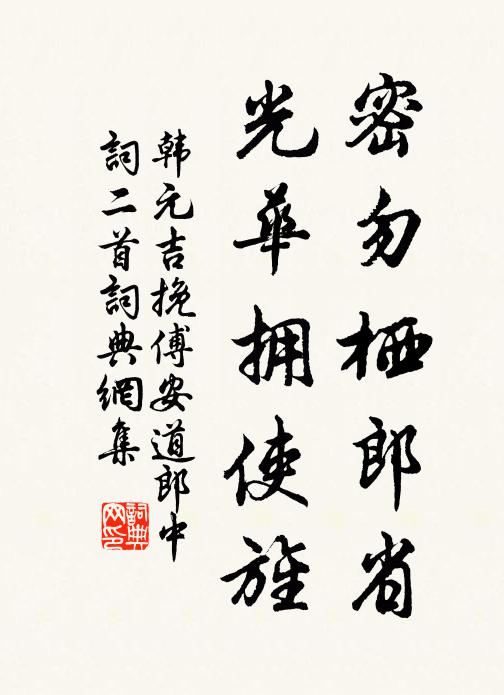 密勿栖郎省
光華拥使旌
韩元吉挽傅安道郎中
詞二首詞典網集
詞典
网印